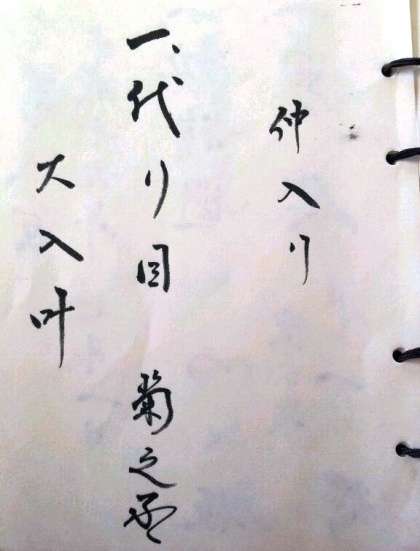 仲入り
一、代り目 菊之丞
大入叶